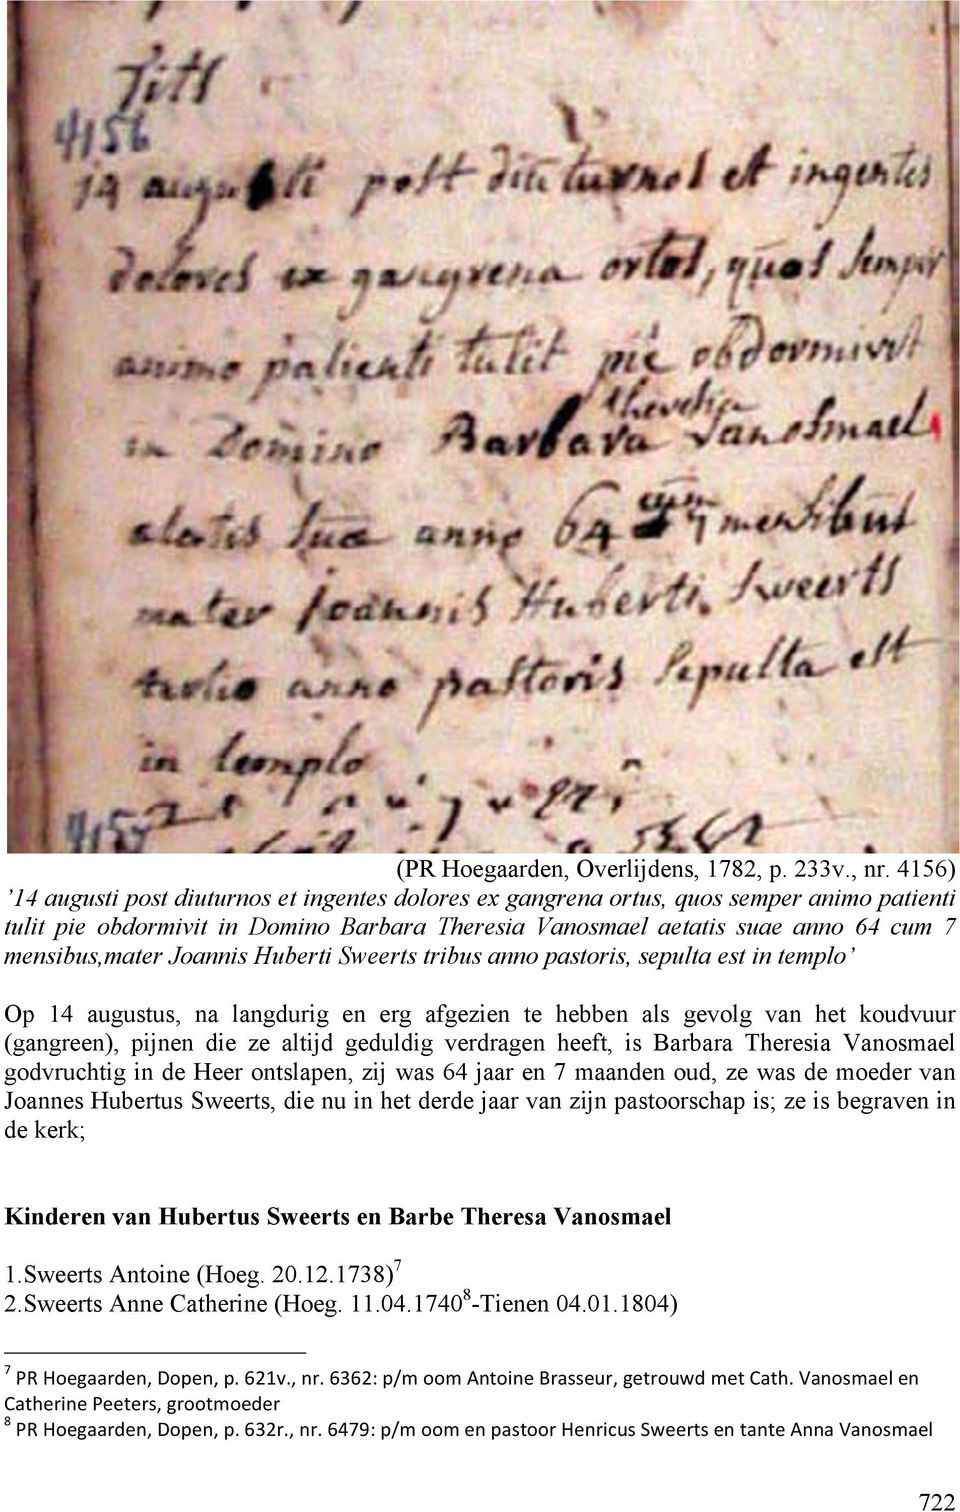 Tits
4156
14 augusti post diuturnos et ingentes
dolores ex gangrena ortos, quos semper
animo patienti tulit pie obdormivit
in Domino Barbara theresia Vanosmael
aetatis suae anno 64 cum 7 mensibus
mater Joannis Huberti Sweerts
tertio anno pastoris sepulta est
in templo
4157
(PR Hoegaarden, Overlijdens, 1782, p. 233v., nr. 4156)
’14 augusti post diuturnos et ingentes dolores ex gangrena ortus, quos semper animo patienti
tulit pie obdormivit in Domino Barbara Theresia Vanosmael aetatis suae anno 64 cum 7
mensibus,mater Joannis Huberti Sweerts tribus anno pastoris, sepulta est in templo’
Op 14 augustus, na langdurig en erg afgezien te hebben als gevolg van het koudvuur
(gangreen), pijnen die ze altijd geduldig verdragen heeft, is Barbara Theresia Vanosmael
godvruchtig in de Heer ontslapen, zij was 64 jaar en 7 maanden oud, ze was de moeder van
Joannes Hubertus Sweerts, die nu in het derde jaar van zijn pastoorschap is; ze is begraven in
de kerk;
Kinderen van Hubertus Sweerts en Barbe Theresa Vanosmael
1.Sweerts Antoine (Hoeg. 20.12.1738)7
2.Sweerts Anne Catherine (Hoeg. 11.04.17408-Tienen 04.01.1804)
7 PR Hoegaarden, Dopen, p. 621v., nr. 6362: p/m oom Antoine Brasseur, getrouwd met Cath. Vanosmael en
Catherine Peeters, grootmoeder
8 PR Hoegaarden, Dopen, p. 632r., nr. 6479: p/m oom en pastoor Henricus Sweerts en tante Anna Vanosmael
722